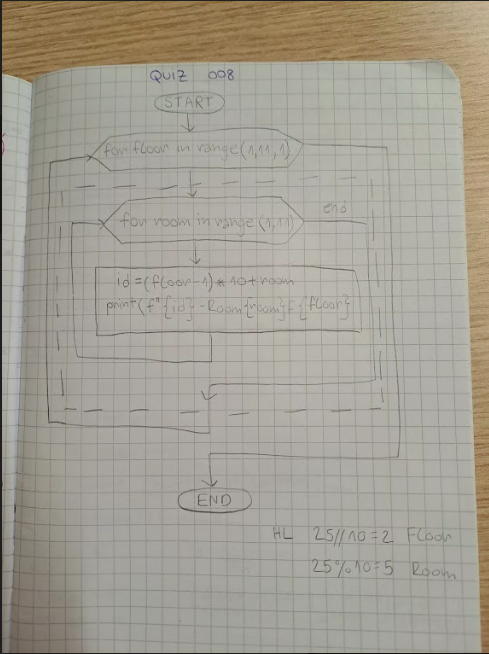 QUIZ 008
START
for floor in range(1,11,1)
for room in range(1,11)
end
id=(floor-1)*10+room
print(f"{id}-Room{room}F{floor}
END
HL 25//10=2 Floor
25%10=5 Room